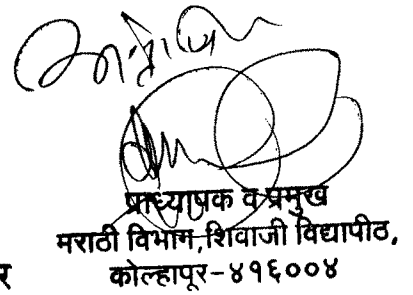 प्राध्यापक व प्रमुख
मराठी विभाग,शिवाजी विद्यापीठ,
र कोल्हापूर-४१६००४